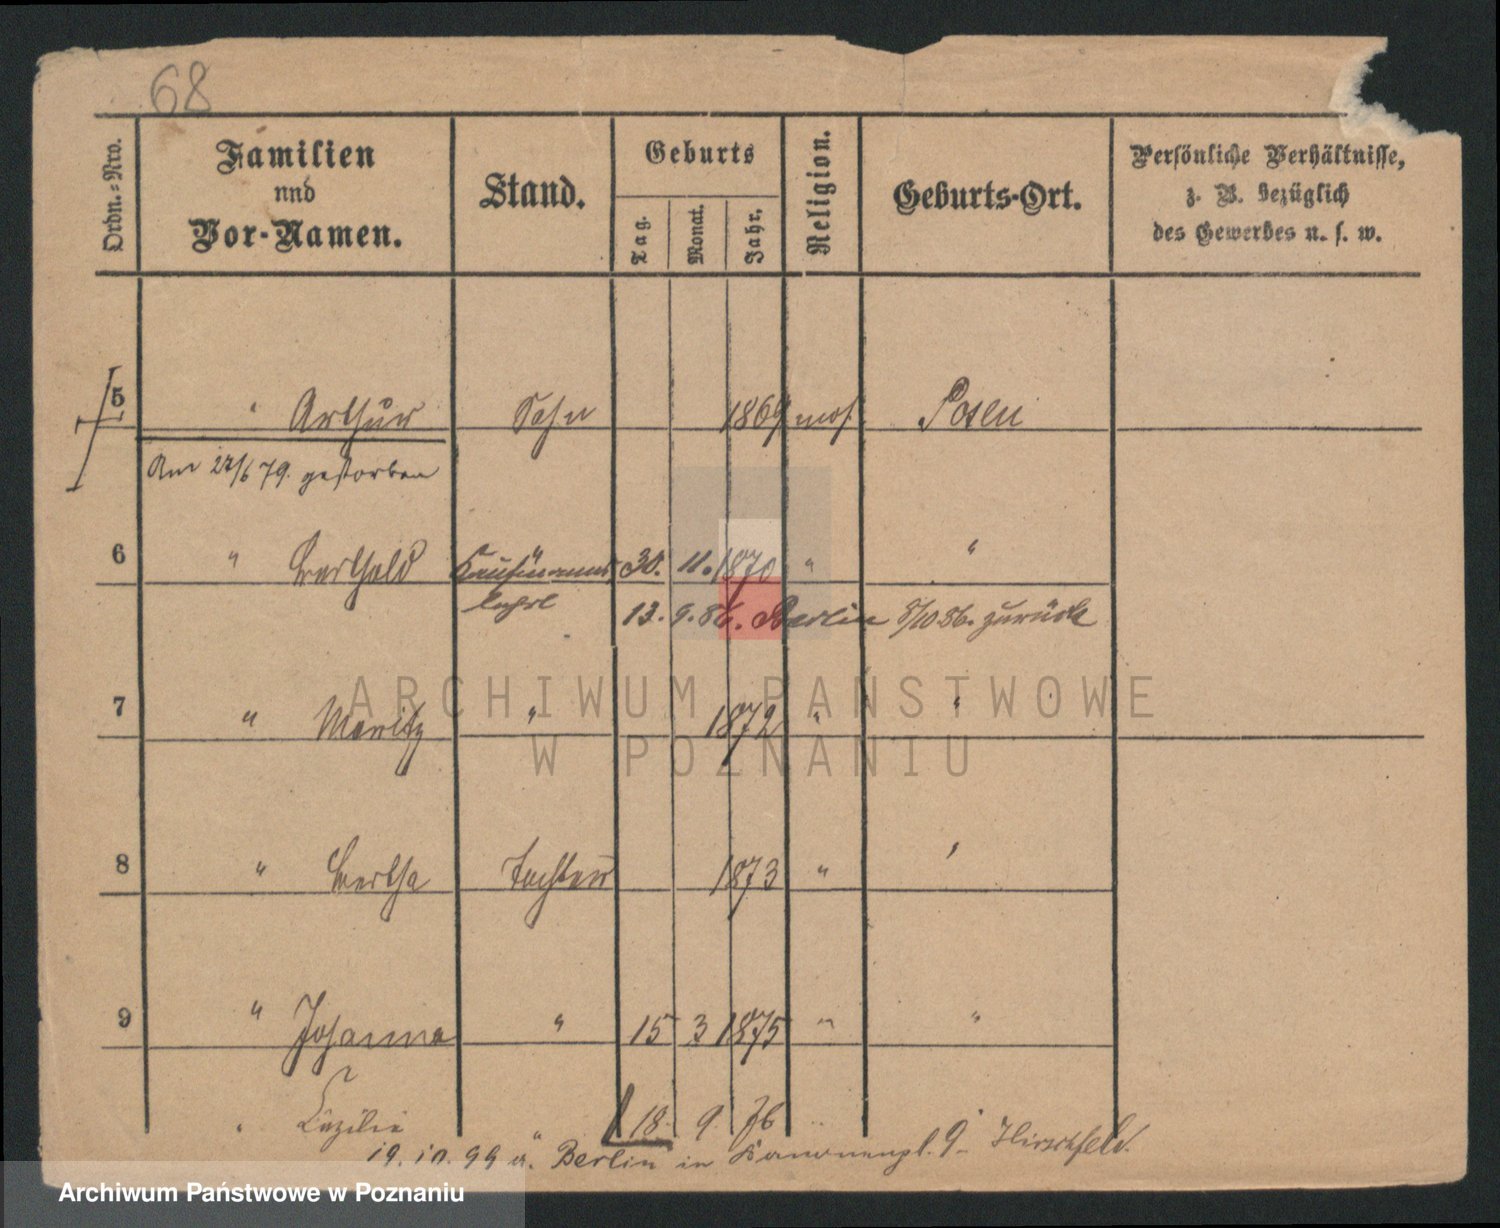 68
Ordn.-Nro.
Familien
und
Vor-Namen.
Stand.
Geburts
Tag.
Monat.
Jahr.
Religion.
Geburts-Ort.
Persönliche Verhältnisse,
z. B. bezüglich
des Gewerbes u. s. w.
5 " Arthur Sohn 1869 mos. Posen
Am 22/6 79. gestorben
6 " Berthold Kaufmanns 30. 11. 1870 " "
13. 9. 86. Berlin 8/10 86. zurück
7 " Moritz " 1872 " "
8 " Bertha Tochter 1873 " "
9 " Johanna " 15 3 1875 " "
" Cäzilie " 18. 9 76 "
19. 10. 99 a. Berlin in 9 Hirschfeld.
ARCHIWUM PAŃSTWOWE
W POZNANIU
Archiwum Państwowe w Poznaniu